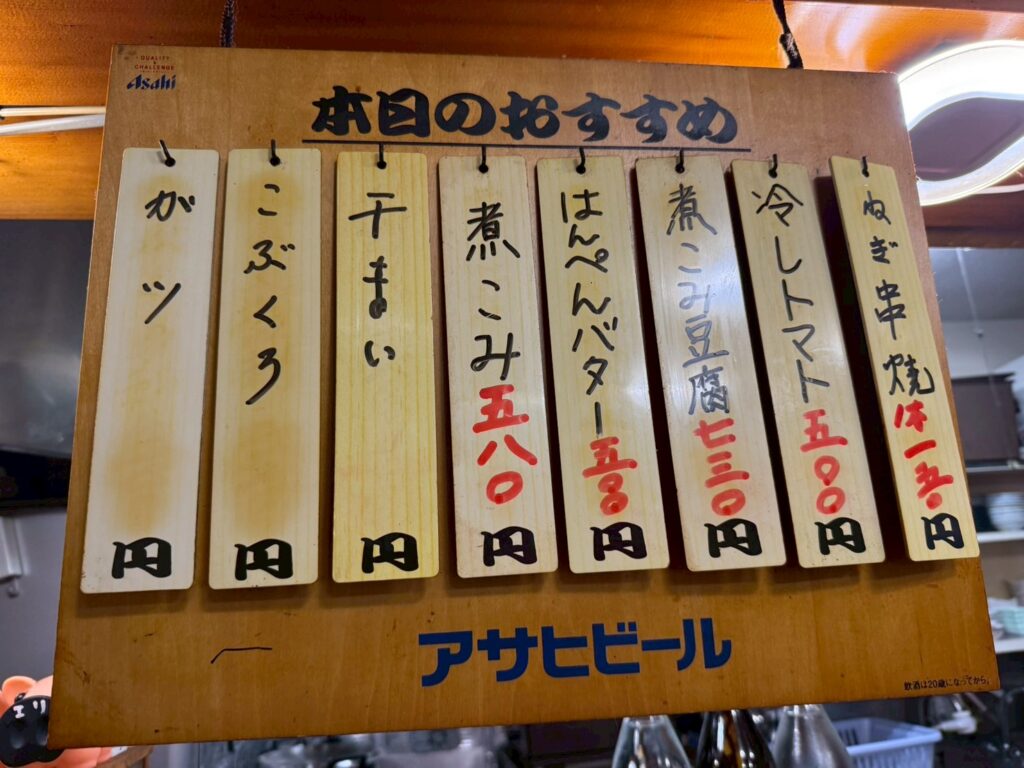 QUALITY
&
CHALLENGE
Asahi
本日のおすすめ
ねぎ串焼1本一五〇円
冷しトマト五〇〇円
煮こみ豆腐七三〇円
はんぺんバター五〇〇円
煮こみ五八〇円
干まい円
こぶくろ円
ガツ円
アサヒビール
飲酒は20歳になってから。
エリ